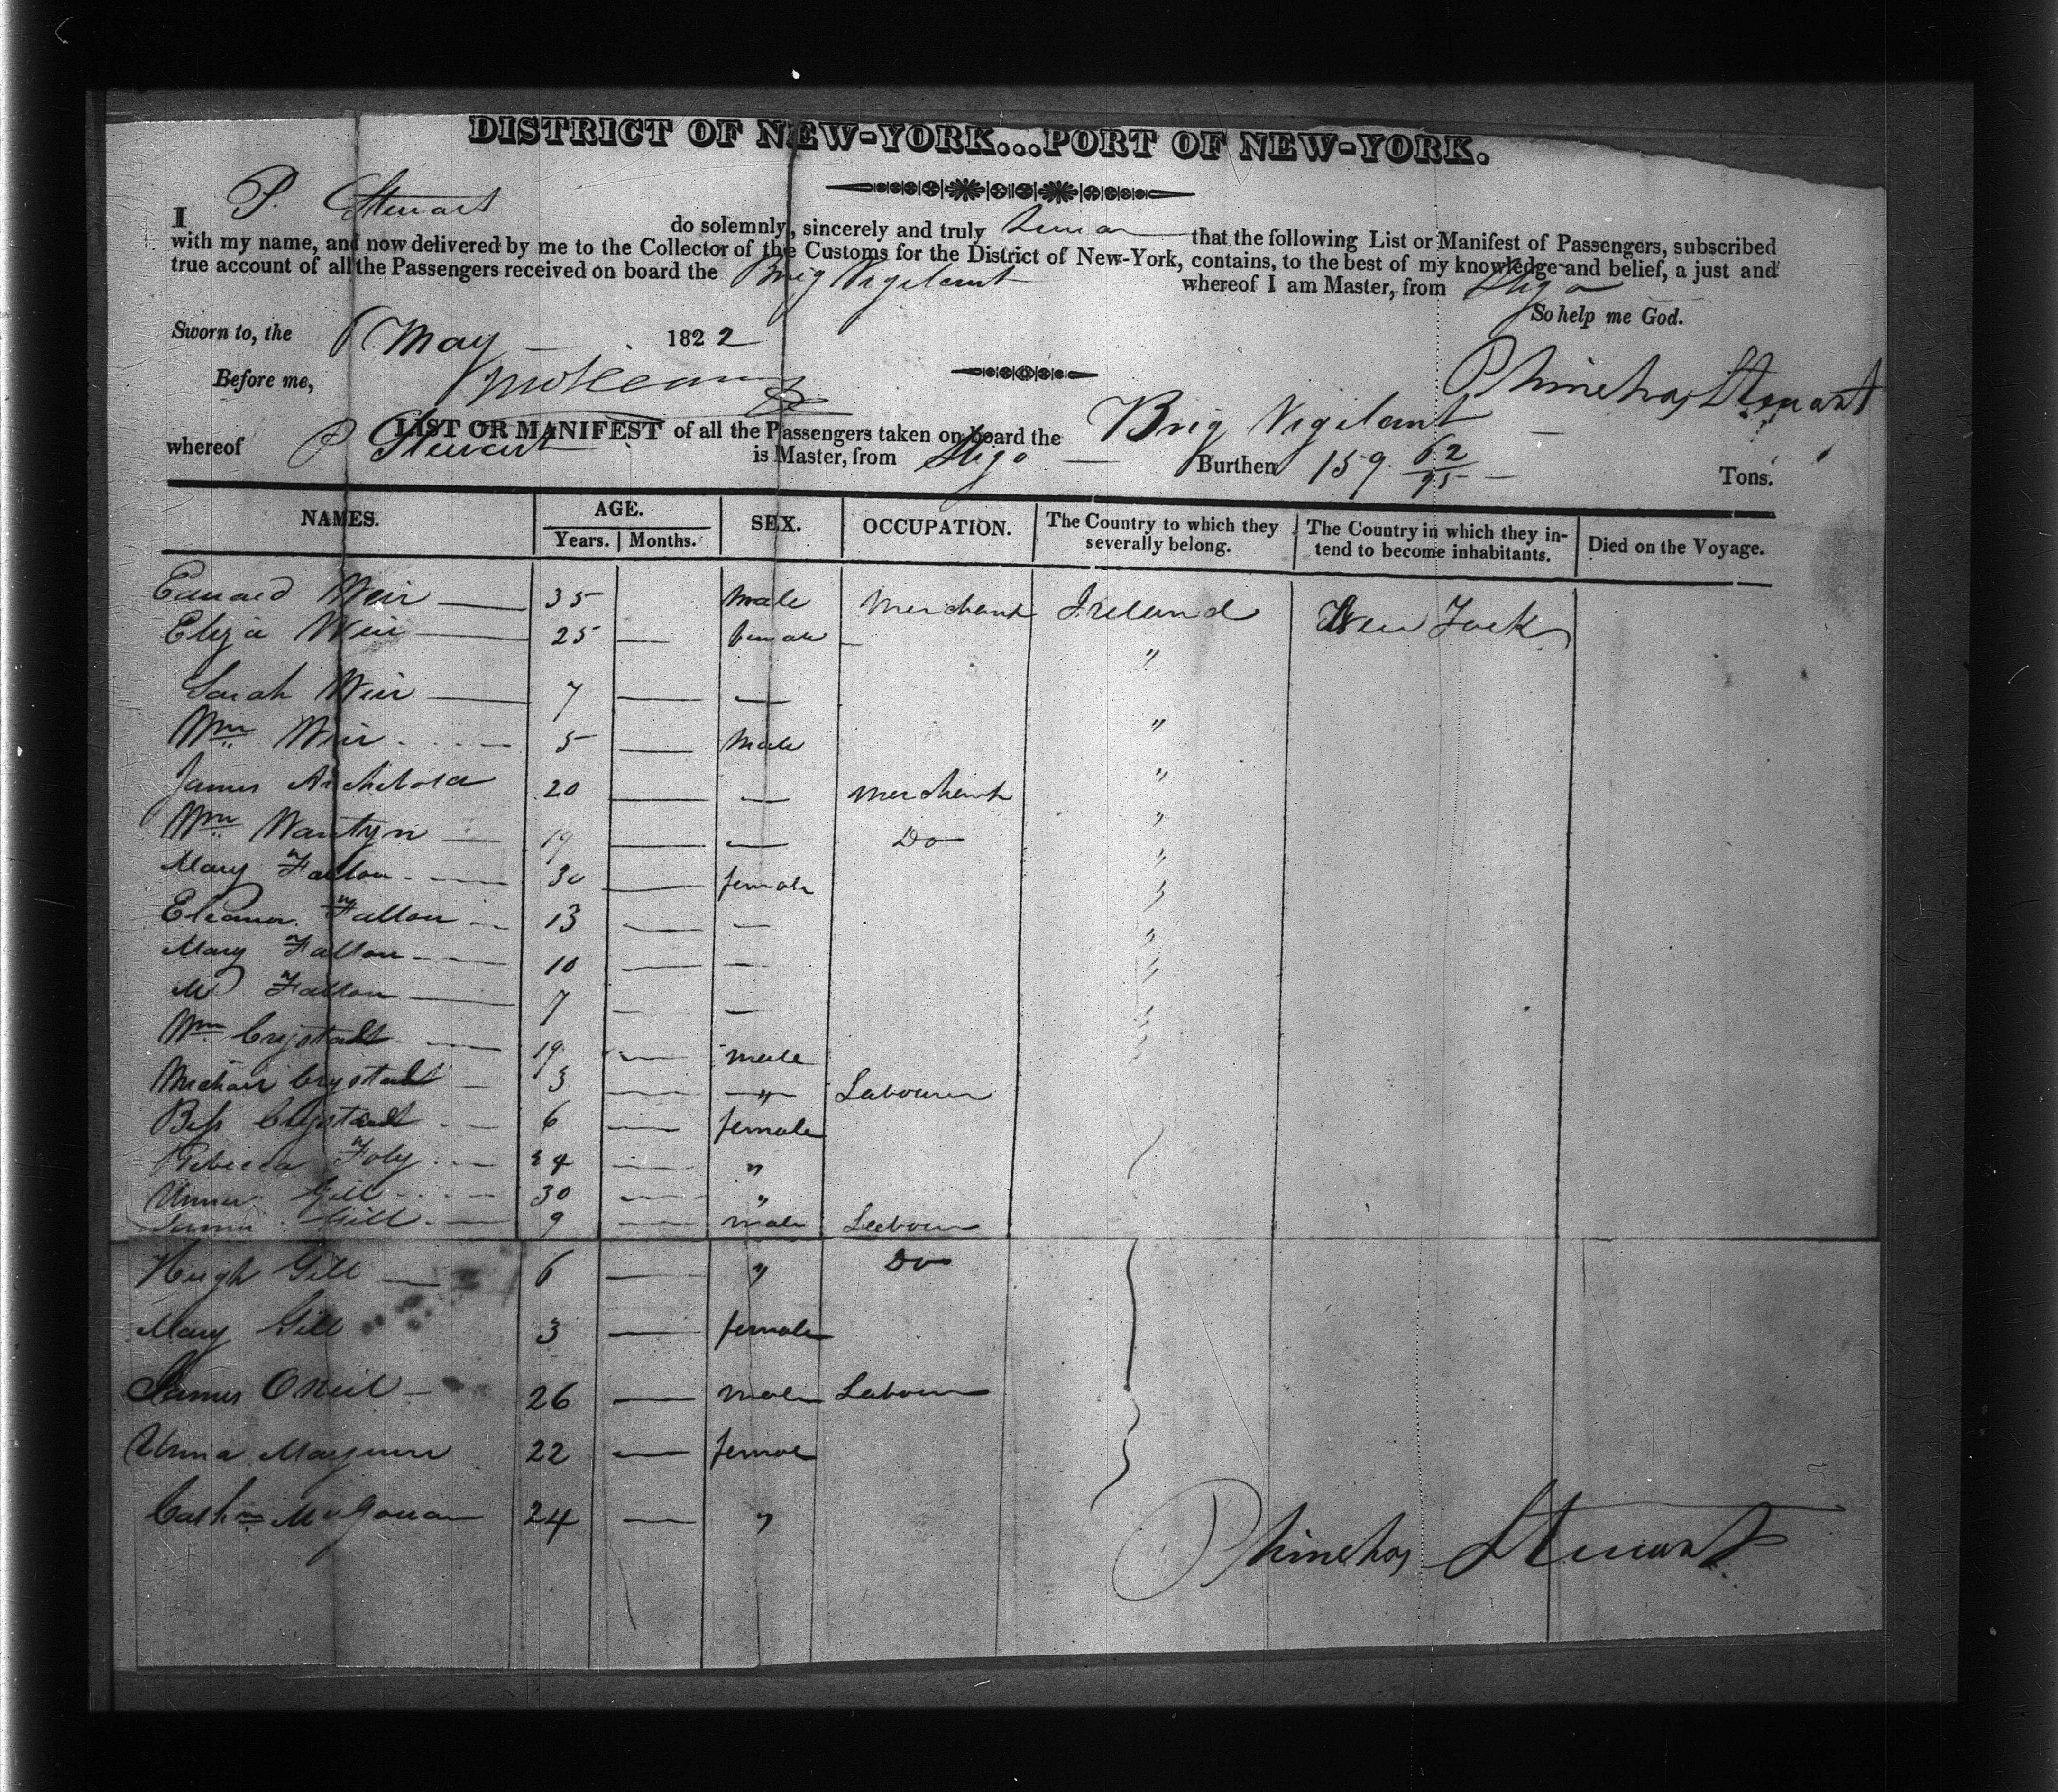 DISTRICT OF NEW-YORK...PORT OF NEW-YORK.
I P. Steuart do solemnly, sincerely and truly swear that the following List or Manifest of Passengers, subscribed
with my name, and now delivered by me to the Collector of the Customs for the District of New-York, contains, to the best of my knowledge and belief, a just and
true account of all the Passengers received on board the Brig Vigilant whereof I am Master, from Sligo
So help me God.
Sworn to, the 6 May 1822
Phinehas Stewart
Before me,
LIST OR MANIFEST of all the Passengers taken on board the Brig Vigilant
whereof P Stewart is Master, from Sligo Burthen 159 62/95 Tons.
NAMES. AGE. SEX. OCCUPATION. The Country to which they severally belong. The Country in which they intend to become inhabitants. Died on the Voyage.
Years. Months.
Edward Weir 35 Male Merchant Ireland New York
Eliza Weir 25 — female — "
Sarah Weir 7 — — "
Wm Weir 5 — Male "
James Archibold 20 — — Merchant "
Wm 19 — — Do "
Mary Fallon 30 — female "
Eleanor Fallon 13 — — "
Mary Fallon 10 — — "
M Fallon 7 — — "
Wm Crystall 19 — male "
Michael Crystall 3 — " Labourer
Bess Crystall 6 — female
Rebecca Foly 24 — "
Unna Gill 30 — "
Gill 9 — male Labour
Hugh Gill 6 — " Do
Mary Gill 3 — female
James ONeil 26 — male Labour
Unna 22 — female
Cathn McGowan 24 — "
Phinehas Stewart